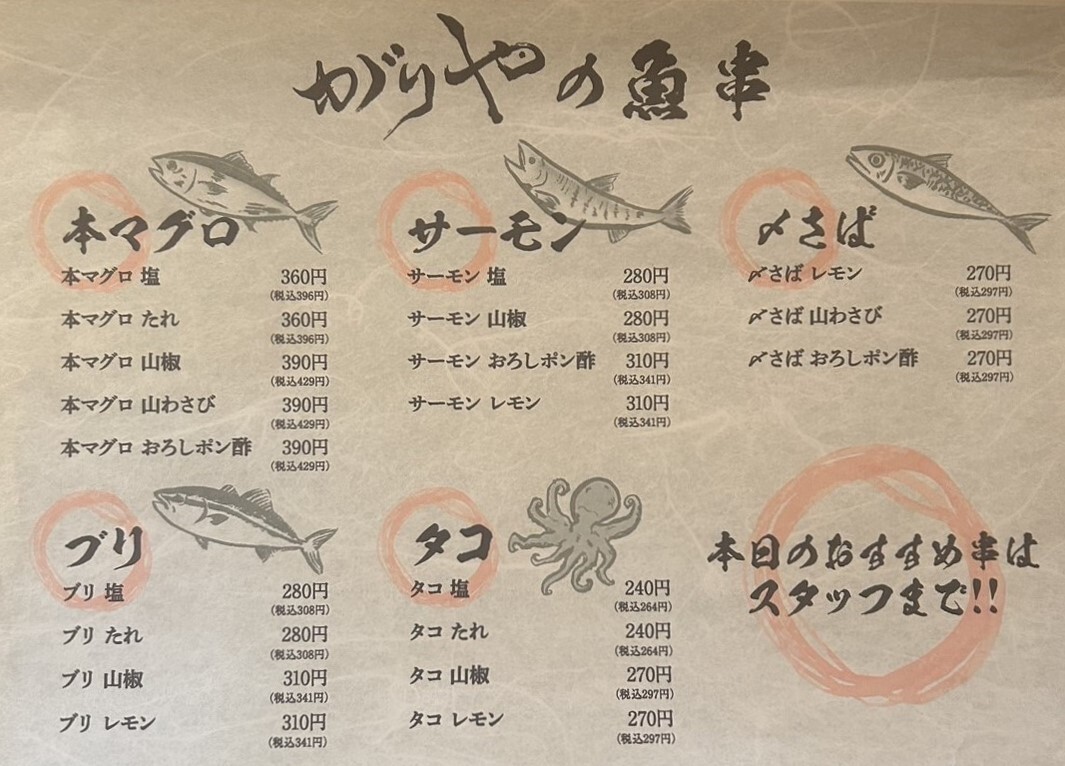 がりやの魚串
本マグロ
本マグロ 塩 360円
(税込396円)
本マグロ たれ 360円
(税込396円)
本マグロ 山椒 390円
(税込429円)
本マグロ 山わさび 390円
(税込429円)
本マグロ おろしポン酢 390円
(税込429円)
サーモン
サーモン 塩 280円
(税込308円)
サーモン 山椒 280円
(税込308円)
サーモン おろしポン酢 310円
(税込341円)
サーモン レモン 310円
(税込341円)
〆さば
〆さば レモン 270円
(税込297円)
〆さば 山わさび 270円
(税込297円)
〆さば おろしポン酢 270円
(税込297円)
ブリ
ブリ 塩 280円
(税込308円)
ブリ たれ 280円
(税込308円)
ブリ 山椒 310円
(税込341円)
ブリ レモン 310円
(税込341円)
タコ
タコ 塩 240円
(税込264円)
タコ たれ 240円
(税込264円)
タコ 山椒 270円
(税込297円)
タコ レモン 270円
(税込297円)
本日のおすすめ串は
スタッフまで!!